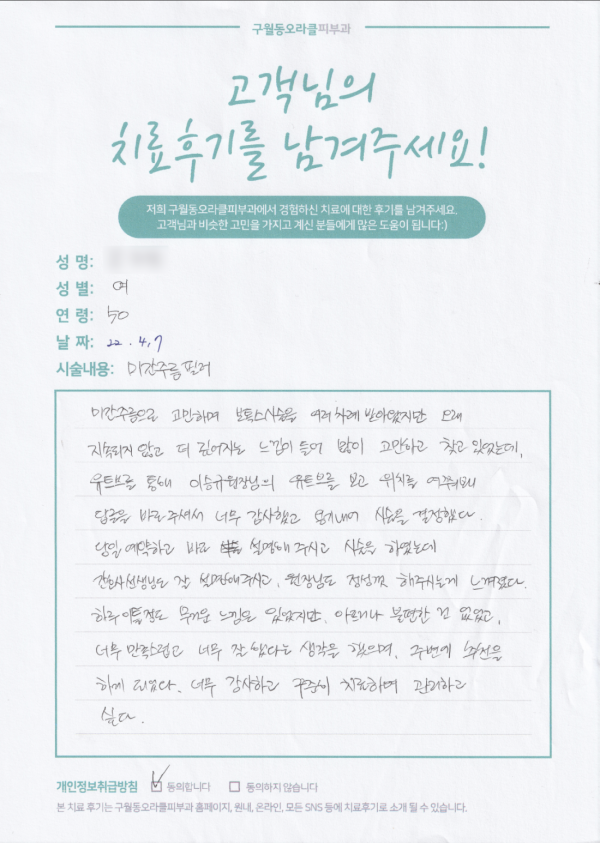 구월동오라클피부과
고객님의
치료후기를 남겨주세요!
저희 구월동오라클피부과에서 경험하신 치료에 대한 후기를 남겨주세요.
고객님과 비슷한 고민을 가지고 계신 분들에게 많은 도움이 됩니다:)
성 명:
성 별: 여
연 령: 50
날 짜: 22. 4. 7
시술내용: 미간주름 필러
미간주름으로 고민하며 보톡스시술을 여러차례 받아왔지만 오래
지속되지 않고 더 깊어지는 느낌이 들어 많이 고민하고 찾고 있었는데,
유트브를 통해 이승규원장님의 유트브를 보고 위치를 여쭤봐
답글을 바로 주셔서 너무 감사했고 용기내어 시술을 결정했다.
당일 예약하고 바로 설명해 주시고 시술을 하였는데
간호사선생님도 잘 설명해주시고, 원장님도 정성껏 해주시는게 느껴졌다.
하루 이틀정도 무거운 느낌은 있었지만, 아프거나 불편한 건 없었고,
너무 만족스럽고 너무 잘했다는 생각을 했으며, 주변에 추천을
하게 되었다. 너무 감사하고 꾸준히 치료하며 관리하고
싶다.
개인정보취급방침 동의합니다 동의하지 않습니다
본 치료 후기는 구월동오라클피부과 홈페이지, 원내, 온라인, 모든 SNS 등에 치료후기로 소개 될 수 있습니다.